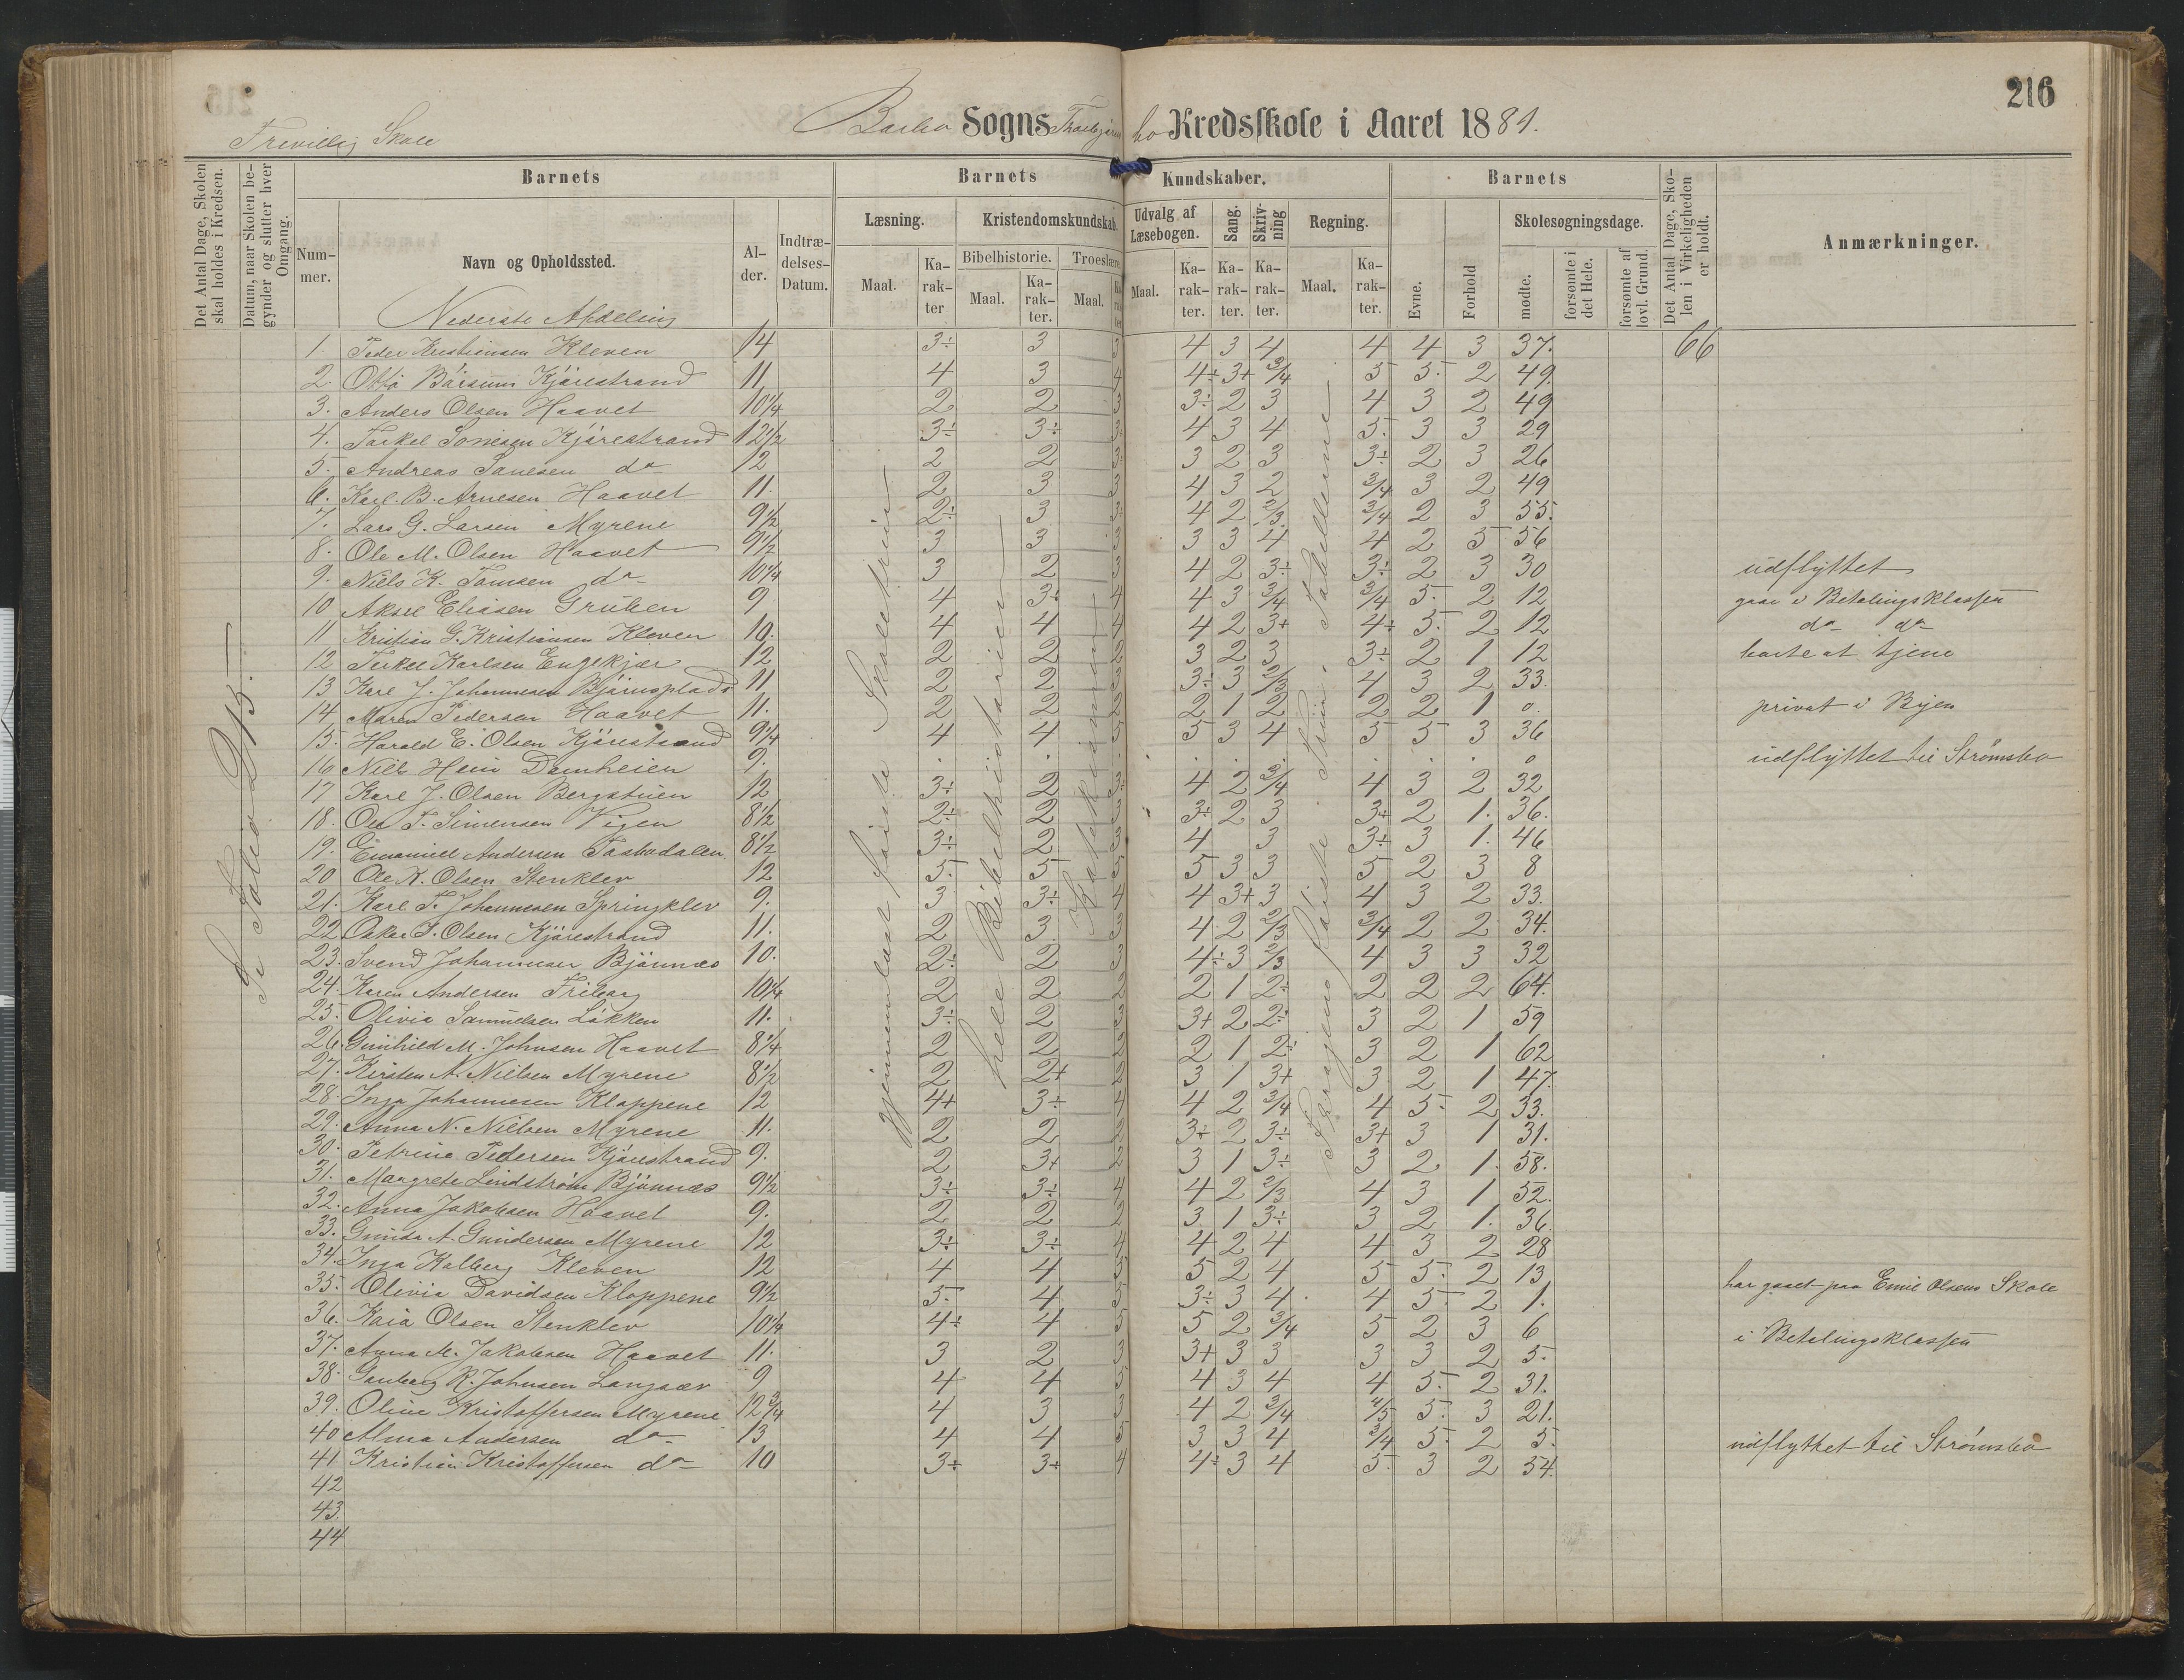 216
Frivillig Skole
Barbo Sogns Kredsskole i Aaret 1881.
Det Antal Dage, Skolen skal holdes i Kredsen.
Datum, naar Skolen begynder og slutter hver Omgang.
Barnets
Barnets Kundskaber.
Barnets
Det Antal Dage, Skolen i Virkeligheden er holdt.
Anmærkninger.
Nummer.
Navn og Opholdssted.
Alder.
Indtrædelses-Datum.
Læsning.
Kristendomskundskab.
Udvalg af Læsebogen.
Sang.
Skrivning
Regning.
Evne.
Forhold
Skolesøgningsdage.
Bibelhistorie.
Troeslære
Maal.
Karakter
Maal.
Karakter.
Maal.
Maal.
Karakter.
Karakter.
Karakter.
Maal.
Karakter.
mødte.
forsømte i det Hele.
forsømte af lovl. Grund.
Nederste Afdeling
Se Folio 215.
gjennemlæst første Skoletrin
hele Bibelhistorien
1. Peder Kristiansen Kleven 14 3÷ 3 3 4 3 4 4 4 3 37. 66
2. Otto Kjärestrand 11 4 3 4 4÷ 3+ 3/4 5 5. 2 49.
3. Anders Olsen Haavet 10 1/4 2 2 3 3÷ 2 3 4 3 2 49
4. Kjärestrand 12 1/2 3÷ 3÷ 3 4 3 4 5. 3 3 29
5. Andreas do 12 2 2 3 3 2 3 3÷ 2 3 26
6. Karl B. Arnesen Haavet 11. 2 3 3 4 3 2 3/4 3 2 49
7. Lars G. Larsen Myrene 9 1/2 2÷ 3 3÷ 4 2 2/3 3/4 2 3 55.
8. Ole M. Olsen Haavet 9 1/2 3 3 3 3 3 4 4 2 3 56
9. Niels K. do 10 1/4 3 2 3 4 2 3÷ 3÷ 2 3 30 udflyttet
10 Aksel Eliasen Gruben 9 4 3+ 4 4 3 3/4 3/4 5. 2 12 gaar i Betalingsklassen
11 Kristian G. Kristiansen Kleven 10. 4 4 4 4 2 3+ 4÷ 5. 2 12 do do
12 Terkel Karlsen Engekjær 12 2 2 2 3 2 3 3÷ 2 1 12 borte at tjene
13 Karl J. Johannesen 11 2 2 2 3÷ 3 2/3 4 3 2 33.
14 Maren Pedersen Haavet 11. 2 2 2 2 1 2 2 2 1 0. privat i Byen
15. Harald E. Olsen Kjärestrand 9 1/4 4 4 5 5 3 4 5 5 3 36
16 Niels Damheien 9. 0 udflyttet til Strømsbo
17 Karl J. Olsen Bergstuen 12 3÷ 2 3÷ 4 2 3/4 4 3 2 32
18. Ole T. Simensen Vigen 8 1/2 2÷ 2 3 3÷ 2 3 3÷ 2 1. 36.
19. Emanuel Andersen 8 1/2 3÷ 2 3 4 3 3÷ 3 1. 46
20 Ole K. Olsen Stenklev 12 5. 5 5 5 3 3 5 2 3 8
21. Karl T. Johannesen Springklev 9. 3 3÷ 4 4 3+ 3 4 3 2 33.
22 Oskar T. Olsen Kjärestrand 11. 2 3 3 4 2 2/3 3/4 2 2 34.
23. Svend Johannesen Bjönnæs 10. 2÷ 2 3 4÷ 3 2/3 4 3 3 32
24. Karen Andersen 10 1/4 2 2 2 2 1 2÷ 2 2 2 64.
25. Olivia Samuelsen Løkken 11. 3÷ 2 3 3+ 2 2÷ 3 2 1 59
26 Gunhild M. Johnsen Haavet 8 1/4 2 2 2 2 1 2÷ 3 2 1 62
27. Kirsten N. Nielsen Myrene 8 1/2 2 2+ 2 3 1 3+ 3 2 1 47.
28. Inga Johannesen Kloppene 12 4+ 3÷ 4 4 2 3/4 4 5. 2 33.
29. Anna N. Nielsen Myrene 11. 2 2 2 3÷ 2 3÷ 3+ 3 1 31.
30. Petrine Pedersen Kjärestrand 9. 2 3+ 2 3 1 3÷ 3 2 1. 58.
31. Margrete Lindström Bjönnæs 9 1/2 3÷ 3÷ 4 4 2 2/3 4 3 1 52.
32. Anna Jakobsen Haavet 9. 2 2 2 3 1 3÷ 3 2 1. 36.
33. A. Gundersen Myrene 12 3÷ 3÷ 4 4 2 4 4 3 2 28
34. Inga Kolberg Kleven 12 4 4 5 5 2 4 5 5. 2 13 har gaaet paa Emil Olsens Skole
35. Olivia Davidsen Kloppene 9 1/2 5. 4 5 3÷ 3 4 4 5. 2 1.
36. Kaia Olsen Stenklev 10 1/4 4÷ 4 5 5 2 3/4 5 2 3 6 i Betalingsklassen
37. Anna M. Jakobsen Haavet 11. 3 2 3 3+ 3 3 3 3 2 5.
38. R. Johnsen Langsæv 9 4 4 5 4 3 4 4 5. 2 31.
39. Oline Kristoffersen Myrene 12 3/4 4 3 3 4 2 3/4 4/5 5. 3 21.
40 Alma Andersen do 13 4 4 5 3 3 4 3/4 5. 2 5. udflyttet til Strømsbo
41 Kristian Kristoffersen do 10 3÷ 3÷ 4 4÷ 3 4 5. 3 2 54.
42
43.
44